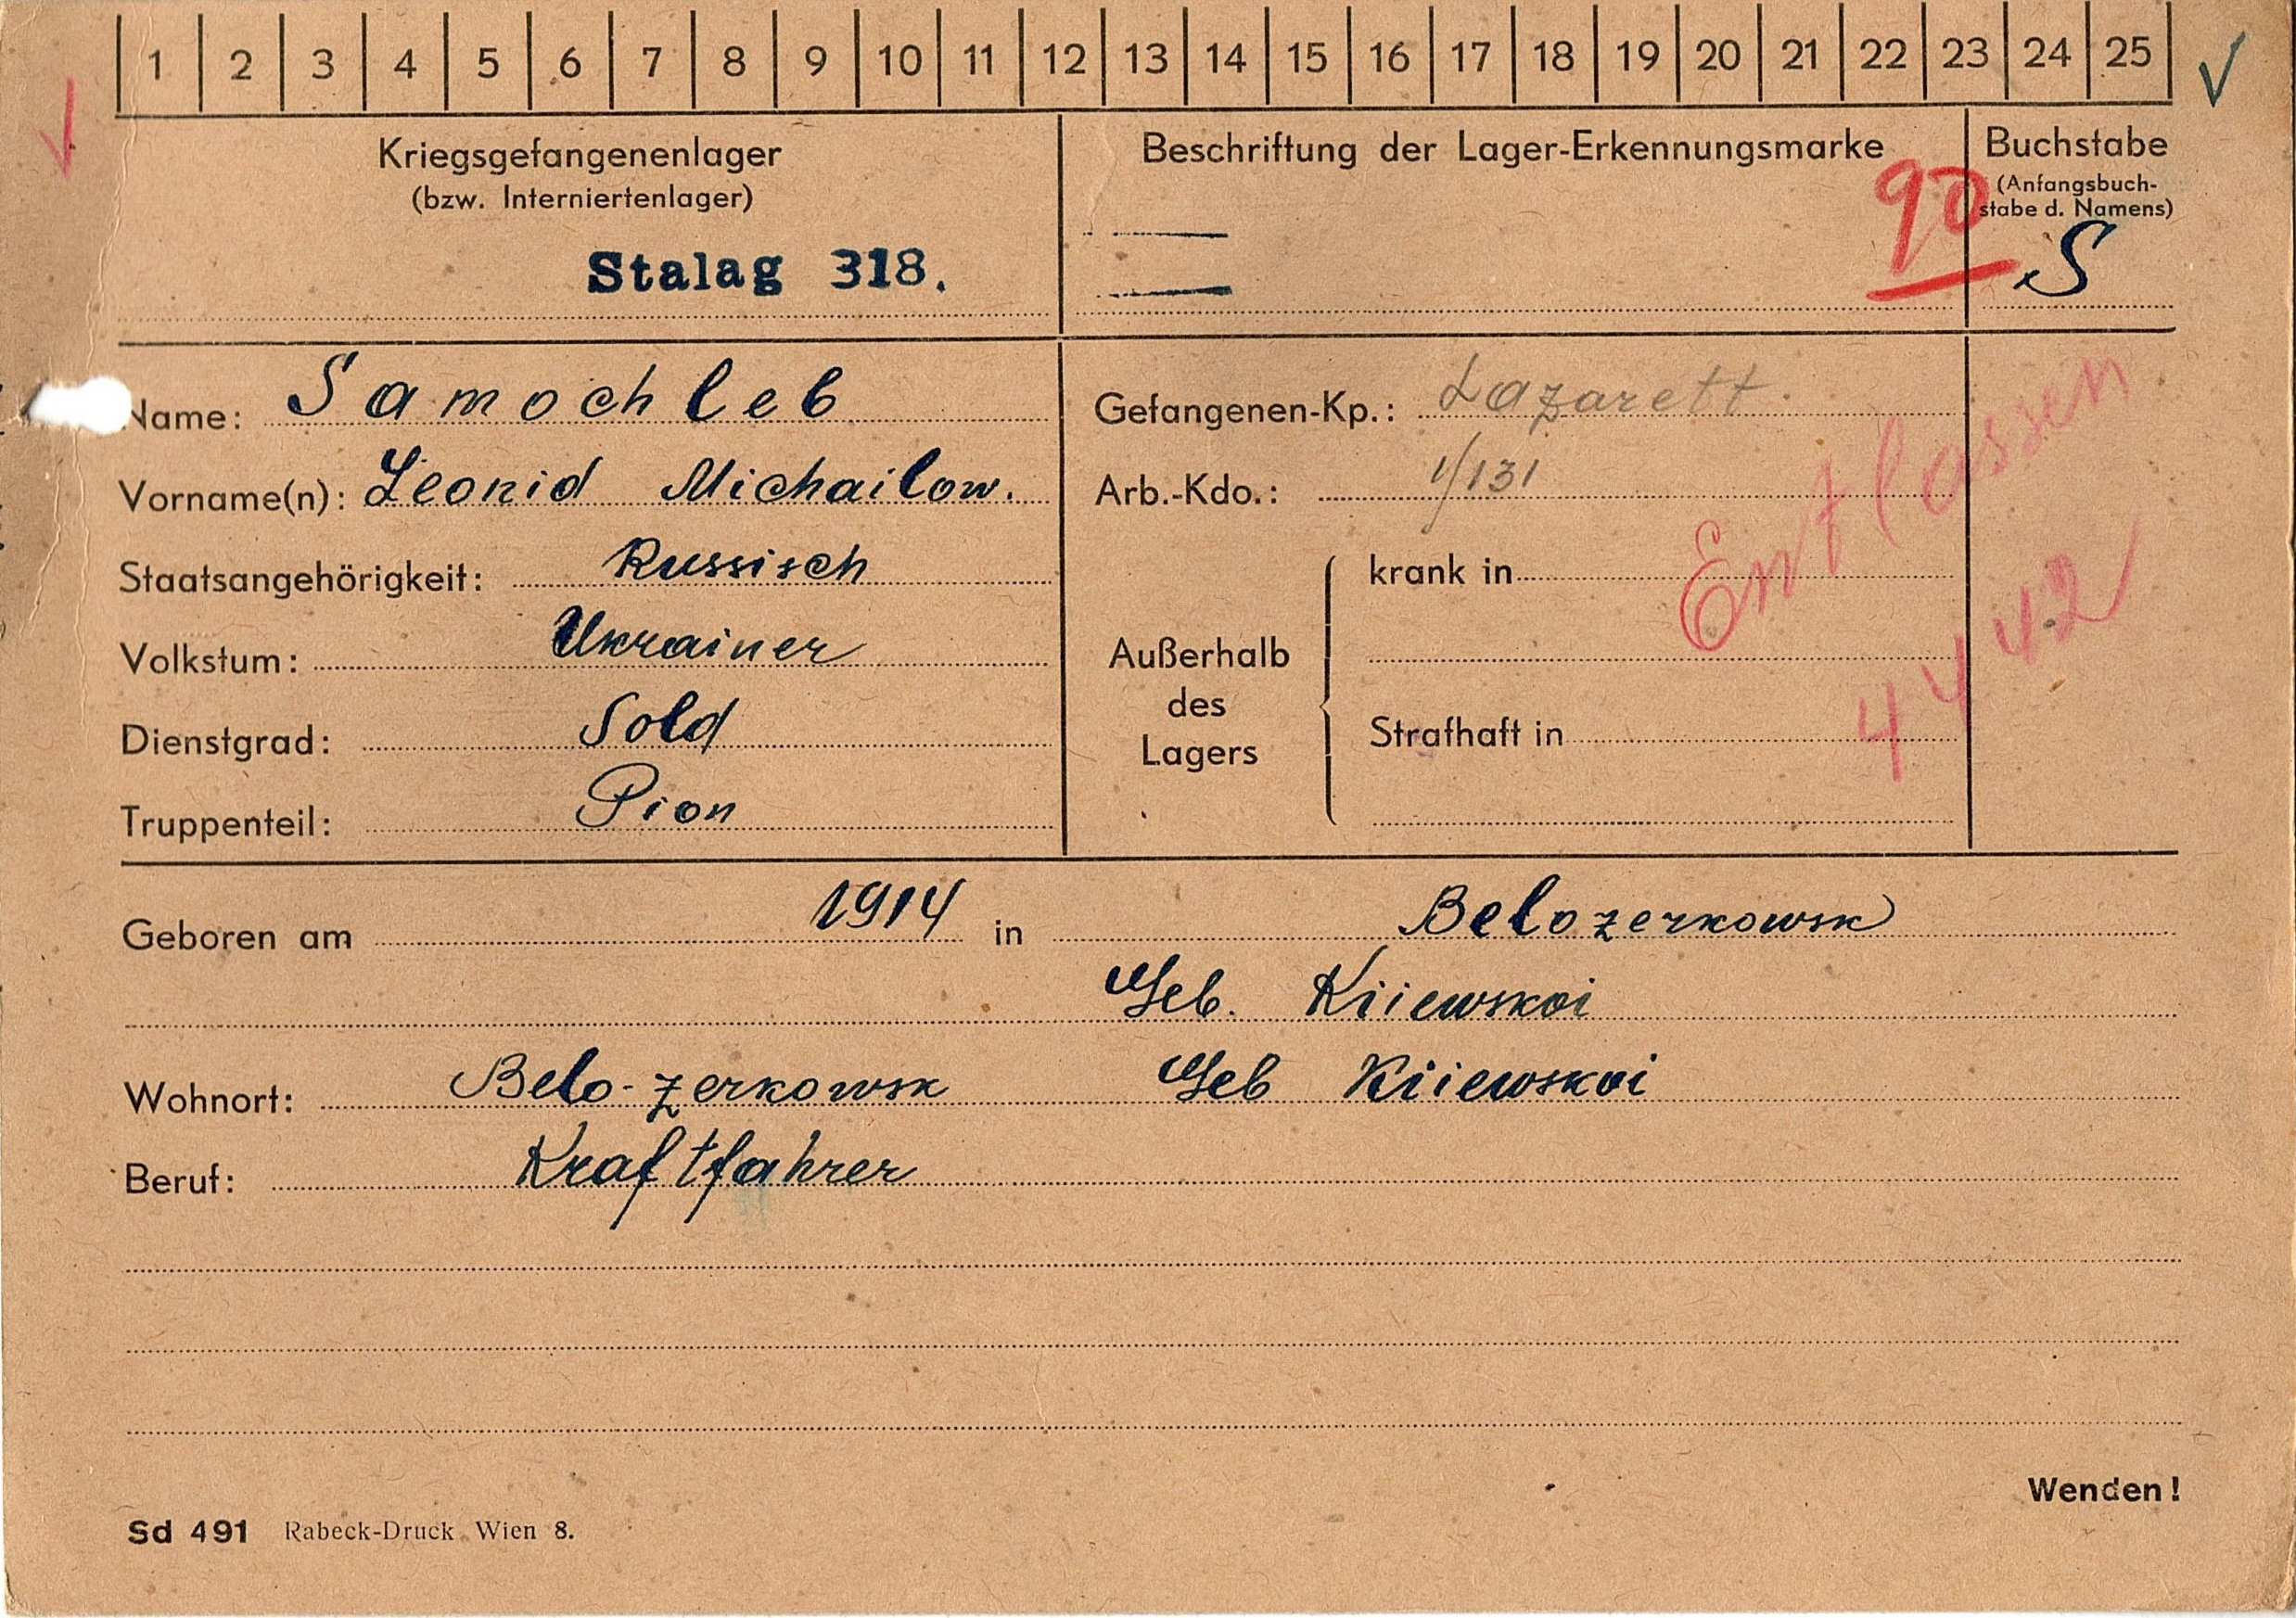 1 2 3 4 5 6 7 8 9 10 11 12 13 14 15 16 17 18 19 20 21 22 23 24 25
Kriegsgefangenenlager
(bzw. Interniertenlager)
Stalag 318.
Beschriftung der Lager-Erkennungsmarke
90
Buchstabe
(Anfangsbuch-
stabe d. Namens)
S
Name: Samochleb
Vorname(n): Leonid Michailow.
Staatsangehörigkeit: Russisch
Volkstum: Ukrainer
Dienstgrad: Sold
Truppenteil: Pion
Gefangenen-Kp.: Lazarett
Arb.-Kdo.: 1/131
Außerhalb
des
Lagers
krank in
Strafhaft in
Entlassen
4 4 42
Geboren am 1914 in Belozerkowsk
Geb. Kiiewskoi
Wohnort: Belo-zerkowsk Geb Kiiewskoi
Beruf: Kraftfahrer
Wenden!
Sd 491 Rabeck-Druck Wien 8.